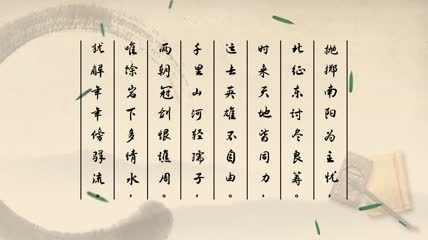 抛掷南阳为主忧，
北征东讨尽良筹。
时来天地皆同力，
运去英雄不自由。
千里山河轻孺子，
两朝冠剑恨谯周。
唯馀岩下多情水，
犹解年年傍驿流。